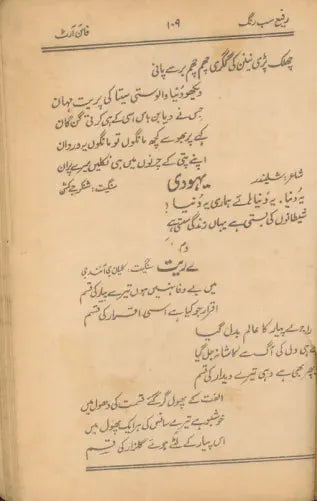 رفیع سب رنگ ۱۰۹ فائن آرٹ
چھلک پڑی نینن کی گگری چھم چھم برسے پانی
دیکھو دُنیا والو ستی سیتا کی پریت نبھانا
جس نے دیا بن باس اسی کے ہی کرتی گن گان
کہے پربھو سے کچھ مانگوں تو مانگوں یہ وردان
اپنے پتی کے چرنوں میں ہی نکلیں میرے پران
شاعر: شیلندر یہودی سنگیت: شنکر جے کشن
یہ دُنیا، یہ دُنیا ہائے ہماری یہ دُنیا!
شیطانوں کی بستی ہے یہاں زندگی سستی ہے
بے ریت سنگیت: کلیان جی آنند جی
میں بے وفا نہیں ہوں تیرے پیار کی قسم
اقرار جو کیا ہے اسی اقرار کی قسم
میرے پیار کا عالم بدل گیا
ہی دل کی آگ سے کاشانہ جل گیا
پھر بھی ہے وہی تیرے دیدار کی قسم
الفت کے پھول گر گئے قسمت کی دھول میں
خوشبو ہے تیرے سانس کی ہر ایک پھول میں
اس پیار کے لٹے ہوئے گلزار کی قسم